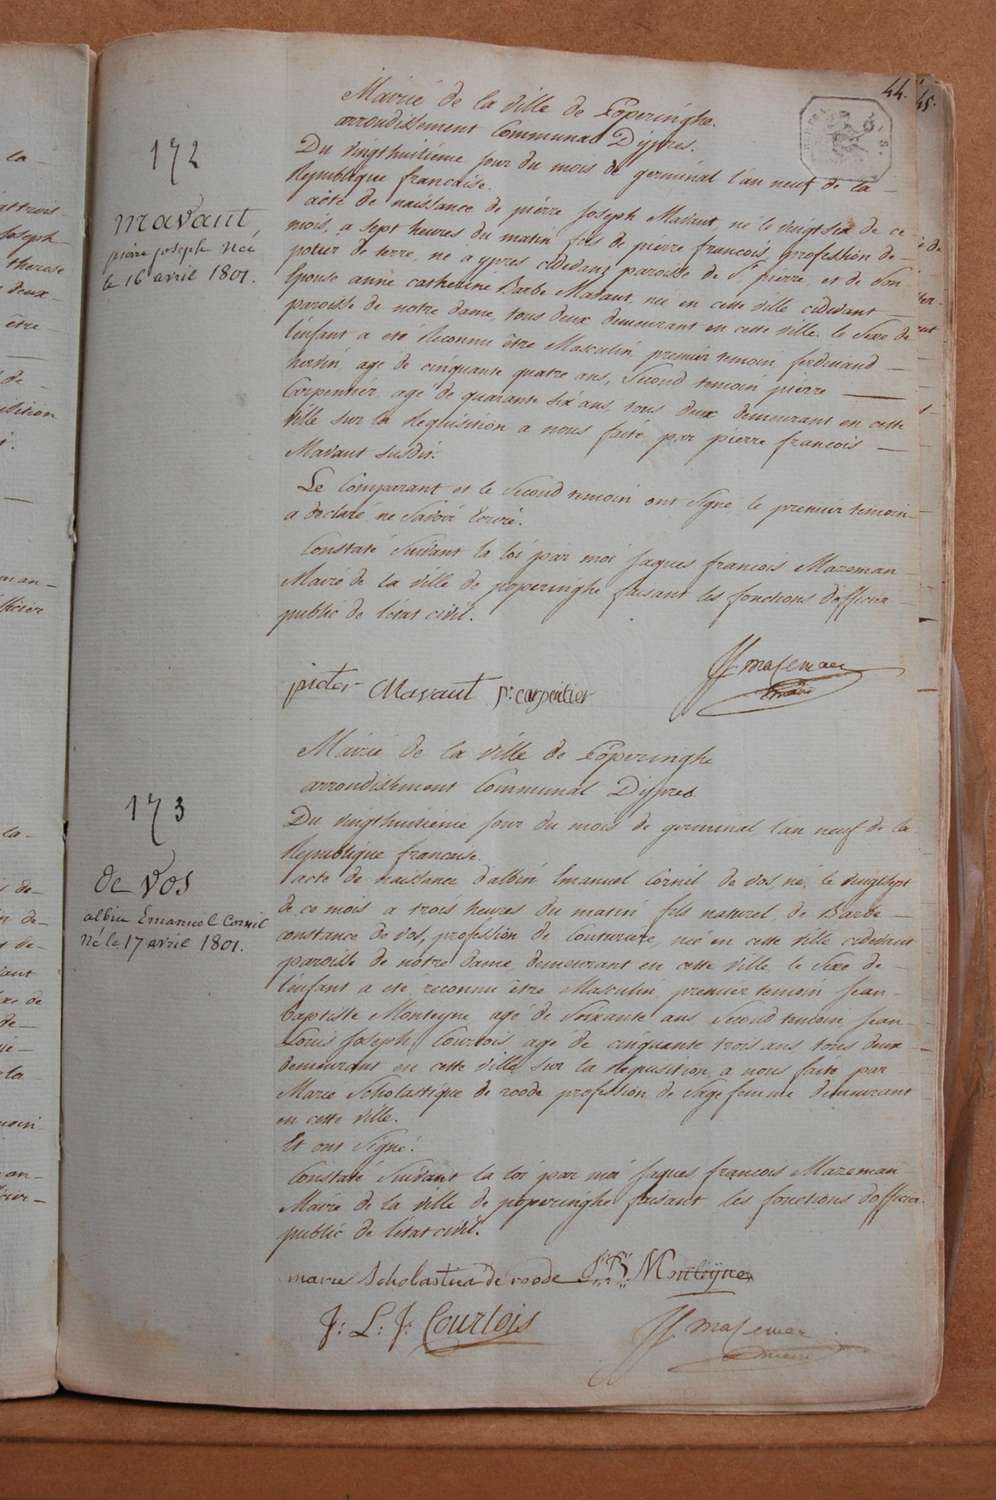 44.
45.
172
Mavaut,
pierre joseph née
le 16 avril 1801.
Mairie de la ville de Poperinghe.
arrondissement Communal D'ypres.
Du vingthuitième jour du mois de germinal l'an neuf de la –
Republique francaise.
acte de naissance de pierre Joseph Mavaut, né le vingt six de ce
mois, a sept heures du matin, fils de pierre francois, profession de –
potier de terre, né a ypres cidevant paroisse de St pierre, et de son
Epouse anne catherine Barbe Mavaut, née en cette ville cidevant –
paroisse de notre dame, tous deux demeurant en cette ville. le Sexe de
l'enfant a eté reconnu être Masculin, premier temoin, ferdinand –
agé de cinquante quatre ans, second temoin pierre –
Carpentier, agé de quarante six ans, tous deux demeurant en cette
ville sur la requisition a nous faite par pierre francois –
Mavaut susdit.
Le Comparant et le second temoin ont signé, le premier temoin –
a declaré ne savoir Ecrire.
Constaté suivant la loi par moi Jaques francois Mazeman
Maire de la ville de poperinghe faisant les fonctions d'officier –
public de l'état civil.
pieter Mavaut P: carpentier
JF mazeman
maire
173
de vos
albin Emanuel Cornil
né le 17 avril 1801.
Mairie de la ville de Poperinghe
arrondissement Communal D'ypres
Du vingthuitième jour du mois de germinal l'an neuf de la
Republique francaise.
acte de naissance d'albin Emanuel Cornil de vos né, le vingtsept
de ce mois a trois heures du matin, fils naturel de Barbe –
constance de vos, profession de Couturiere, née en cette ville cidevant
paroisse de notre dame, demeurant en cette ville, le Sexe de –
l'enfant a eté reconnu être Masculin, premier temoin, Jean –
baptiste Monteyne, agé de Soixante ans second temoin, Jean –
Louis Joseph Courtois, agé de cinquante trois ans, tous deux –
demeurant en cette ville, sur la requisition, a nous faite par –
Marie Scholastique de roode profession de Sage femme demeurant
en cette ville.
Et ont signé.
Constaté suivant la loi par moi Jaques francois Mazeman –
Maire de la ville de poperinghe faisant les fonctions d'officier
public de l'état civil.
marie Scholastica de roode J: B: Monteyne
J: L: J: Courtois
JF mazeman
maire